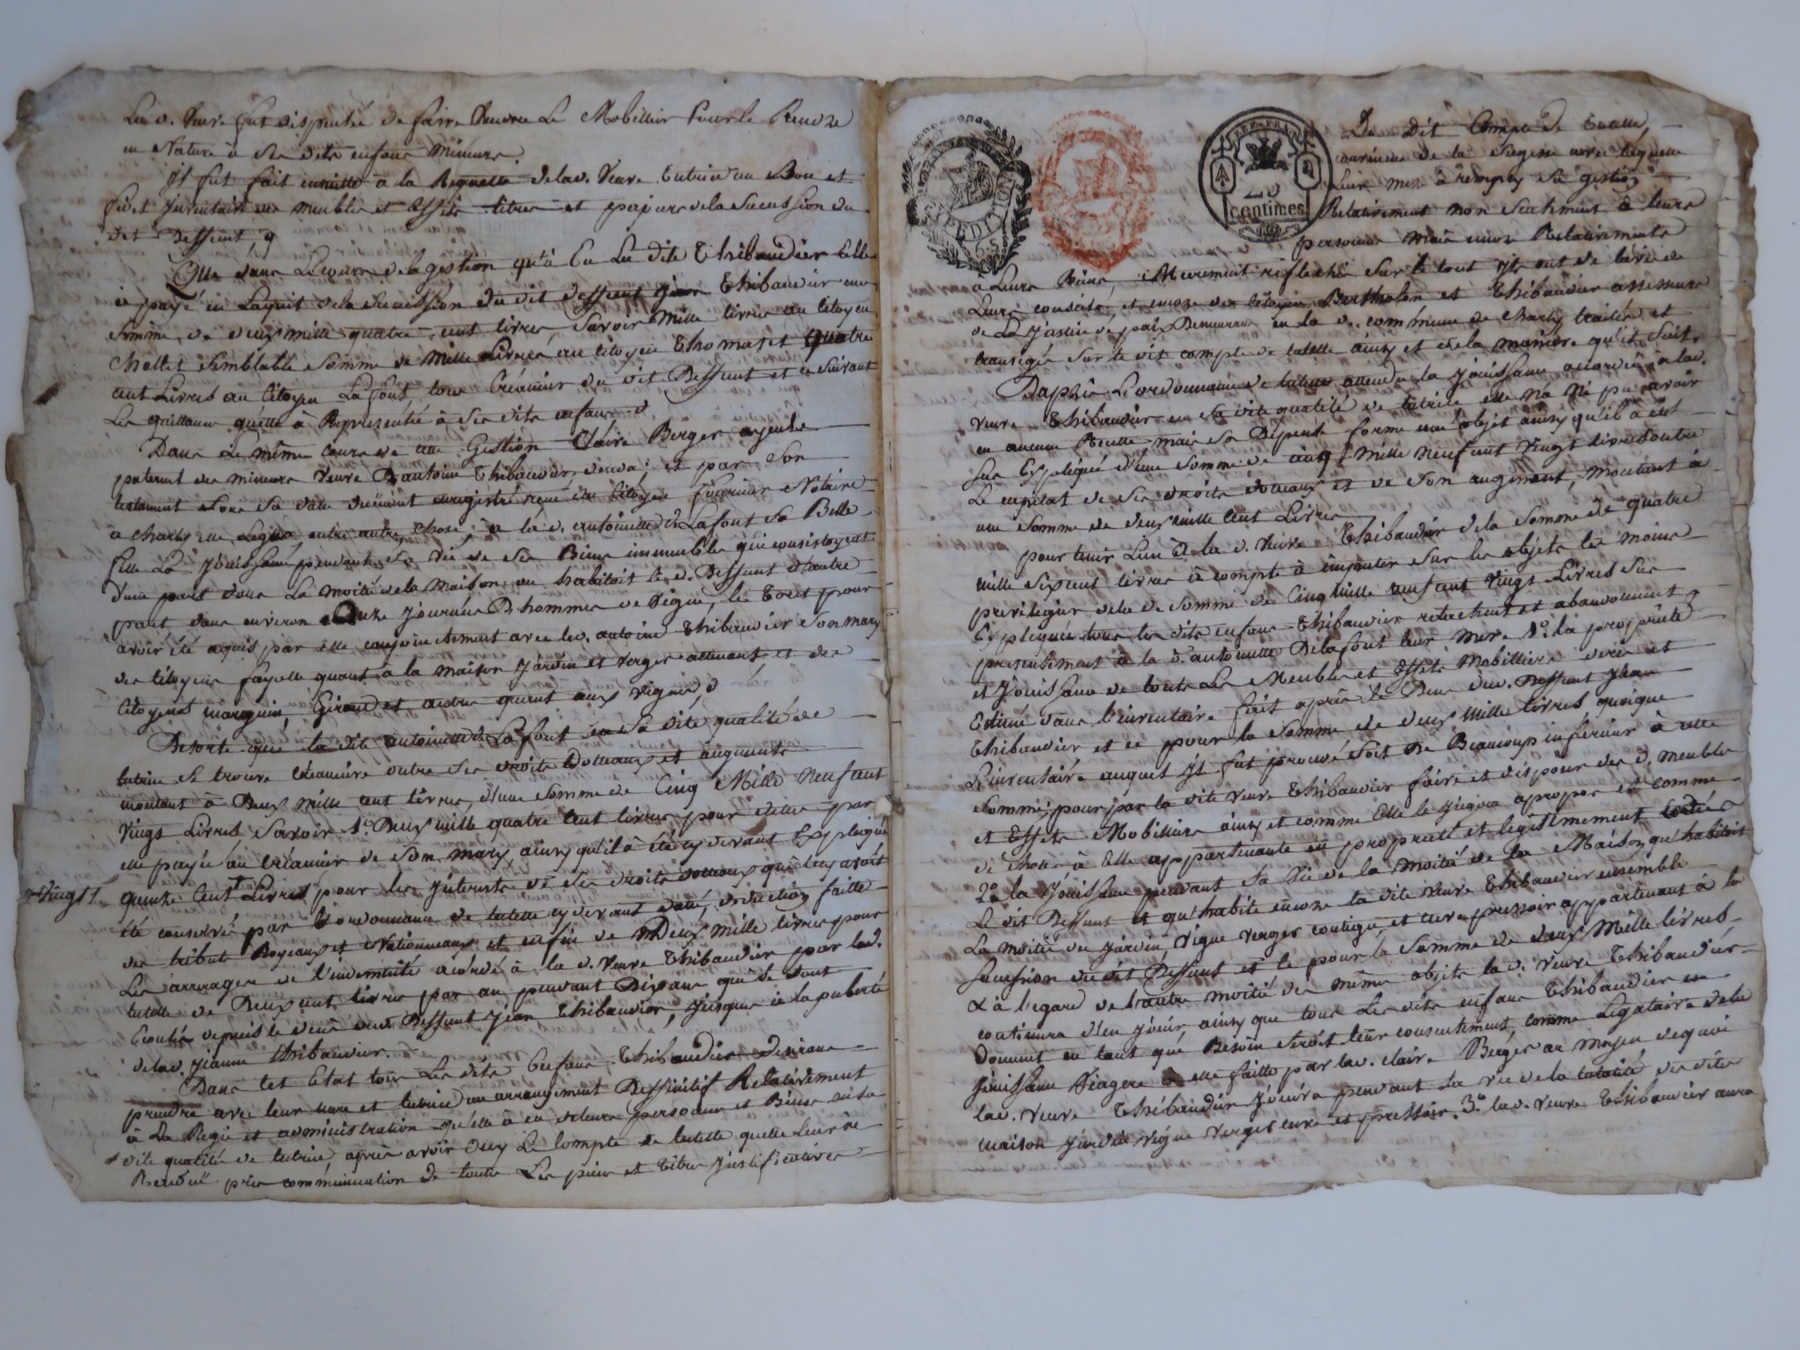 La d. Veuve fut dispensée de faire Vendre Le Mobillier pour le Rendre
en Nature à Ses dits enfans Mineurs.
Il fut fait ensuitte à la Requette de lad. Veuve tutrice un Bon et
fidel Inventaire des meubles et effets titres et papiers de la Succession du
dit Deffunt,
Que dans Le cours de la gestion qu'à Eu La dite Thibaudier Elle
à payé en L'aquit de la Succession du dit deffunt Thibaudier une
Somme de deux mille quatre cent livres, Savoir Mille livres au Citoyen
Chollet Semblable Somme de Mille Livres au Citoyen Thomas et Quatre
cent Livres au Citoyen Lafont, tous Créanciers du dit Deffunt et Suivant
Les quittances quelle à Représenté à Ses dits enfans
Dans Le même Cours de cette Gestion Claire Berger ayeule
paternel des mineurs Veuve D'antoine Thibaudier déceda et par Son
testament Sous Sa datte duement enregistré reçu du Citoyen Fournier Notaire
à Charly elle Legua entre autre chose, à la d. antoinette de Lafont Sa Belle
fille La Jouissance pendant Sa vie de Ses Biens immeubles qui consistoyent
d'une part dans La moitié de la Maison ou habitoit le d. Deffunt d'autre
part dans environ Onze Journées D'hommes de Vigne, le tout pour
avoir été aquis par elle conjointement avec led. antoine Thibaudier Son mary
des Citoyens fayolle quant à la maison Jardin et Verger attenant et des
Citoyens marquin, Giraud et autre quant aux Vignes,
Desorte que la dite antoinette de Lafont en Sa dite qualité de
tutrice Se trouve Créancière outre Ses droits Dotteaux et augments
montant à Deux Mille cent livres, d'une Somme de Cinq Mille Neuf cent
Vingt Livres Savoir 1° Deux mille quatre Cent livres pour dettes par
elle payée au Créancier de Son mary, ainsy qu'il à été cy devant Expliqué
quinze Cent Livres pour Les Interets de Ses droits dotteaux qui luy avoit
+ Vingt
été conservé par L'ordonnance de tutelle cy devant daté, déduction faitte
des tributs Royeaux et Nationneaux et enfin de Deux Mille livres pour
Les arrerages de L'indemnité acordé à la d. Veuve Thibaudier par lad.
tutelle de Deux cent livres par an pendant Dix ans qui Se Sont
Ecoulés depuis le deces dud. Deffunt Jean Thibaudier, Jusques à la puberté
de lad. Jeanne Thibaudier.
Dans Cet Etat tous Les dits Enfans Thibaudier desirans
prendre avec leur mere et tutrice un arrangement Deffinitif Relativement
à La Regie et administration qu'elle à eu de leurs personnes et Biens en Sa
dite qualité de tutrice, après avoir Ouy Le Compte de tutelle quelle leur à
Rendu pris communication de toutes Les pieces et titres Justificatives
REP. FRA.
25
centimes
Du Dit Compte de tutelle,
convaincus de la Sagesse avec laquelle
Leur mere à remply Sa gestion
Relativement non Seulement à leurs
personnes mais encore Relativement
à Leurs Biens, Meurement reflechis Sur le tout Ils ont de l'avis de
Leurs conseils, et encore des Citoyens Bertholon et Thibaudier assesseurs
de La Justice de paix Demeurans en la d. commune de Charly traités et
transigés Sur le dit compte de tutelle ainsy et de la maniere qu'il Suit.
Daprés L'ordonnance de tutelle attendu la Jouissance accordée à lad.
Veuve Thibaudier en Sa dite qualité de tutrice elle n'a pu avoir
en aucune Recette mais Sa Dépense forme un objet ainsy qu'il à été
Sus Expliqué d'une Somme de cinq Mille Neuf cent Vingt Livres outre
Le capital de Ses droits dotteaux et de Son augment, montant à
une Somme de deux mille Cent Livres
pour tenir Lieu à la d. Veuve Thibaudier de la Somme de quatre
mille Six cent livres à compte à imputer Sur les objets les moins
privilegiés de la d. Somme de Cinq mille neuf cent Vingt Livres Sus
Expliquée tous les dits enfans Thibaudier relachent et abandonnent
presentement à la d. antoinette Delafont leur mere 1° la proprieté
et Jouissance de touts Les Meubles et Effets Mobilliers décrit et
Estimé dans l'inventaire fait après le Deces dud. Deffunt Jean
Thibaudier et ce pour la Somme de deux Mille livres quoique
L'inventaire auquel Il fut procedé Soit de Beaucoup inferieur à cette
Somme, pour par la dite Veuve Thibaudier faire et disposer des d. meubles
et Effets Mobilliers ainsy et comme Elle le Jugera apropos et comme
de Chose à Elle appartenante en proprieté et legitimement
2° la Jouissance pendant Sa Vie de la Moitié de la Maison qu'habitoit
Le dit Deffunt et qu'habite encore la dite Veuve Thibaudier ensemble
La moitié du Jardin Vigne Verger contigu, et cuve pressoir appartenant à la
Succession du dit Deffunt et ce pour la Somme de deux Mille livres
& à l'egard de l'autre moitié des mêmes objets la d. Veuve Thibaudier
continuera d'en Jouir, ainsy que tous Les dits enfans Thibaudier en
donnent en tant que Besoin Seroit leur consentement, comme Legataire de la
Jouissance Viagere à elle faitte par lad. Claire Berger au Moyen dequoi
lad. Veuve Thibaudier Jouira pendant Sa vie de la totalité des dits
maison Jardin Vigne Verger cuve et pressoir. 3° lad. Veuve Thibaudier aura